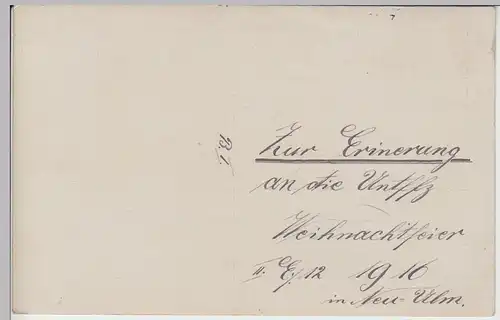 Zur Erinerung
an die Untffz
Weihnachtfeier
II. E/.12 1916
in Neu-Ulm.